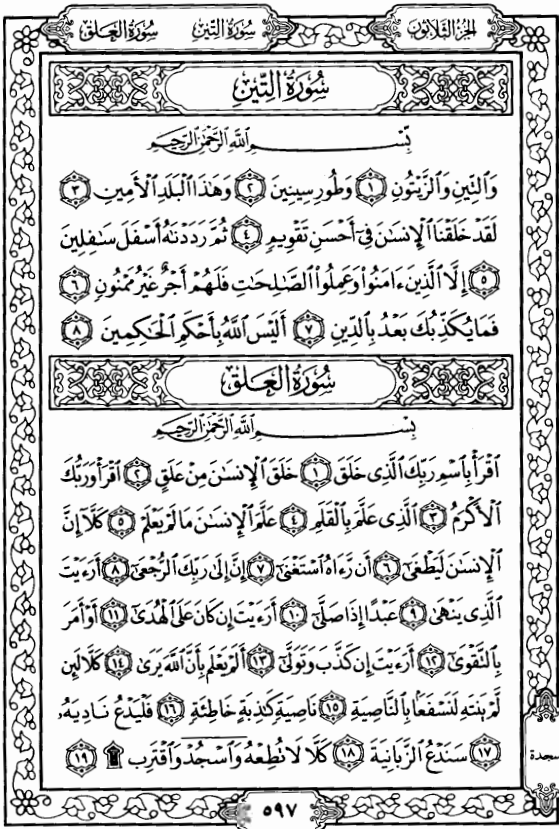 الجزء الثلاثون سورة التين سورة العلق
سُورَةُ التِّينِ
بِسْمِ اللَّهِ الرَّحْمَٰنِ الرَّحِيمِ
وَالتِّينِ وَالزَّيْتُونِ ١ وَطُورِ سِينِينَ ٢ وَهَٰذَا الْبَلَدِ الْأَمِينِ ٣
لَقَدْ خَلَقْنَا الْإِنسَٰنَ فِىٓ أَحْسَنِ تَقْوِيمٍ ٤ ثُمَّ رَدَدْنَٰهُ أَسْفَلَ سَٰفِلِينَ
٥ إِلَّا الَّذِينَ ءَامَنُوا۟ وَعَمِلُوا۟ الصَّٰلِحَٰتِ فَلَهُمْ أَجْرٌ غَيْرُ مَمْنُونٍ ٦
فَمَا يُكَذِّبُكَ بَعْدُ بِالدِّينِ ٧ أَلَيْسَ اللَّهُ بِأَحْكَمِ الْحَٰكِمِينَ ٨
سُورَةُ الْعَلَقِ
بِسْمِ اللَّهِ الرَّحْمَٰنِ الرَّحِيمِ
اقْرَأْ بِاسْمِ رَبِّكَ الَّذِى خَلَقَ ١ خَلَقَ الْإِنسَٰنَ مِنْ عَلَقٍ ٢ اقْرَأْ وَرَبُّكَ
الْأَكْرَمُ ٣ الَّذِى عَلَّمَ بِالْقَلَمِ ٤ عَلَّمَ الْإِنسَٰنَ مَا لَمْ يَعْلَمْ ٥ كَلَّآ إِنَّ
الْإِنسَٰنَ لَيَطْغَىٰٓ ٦ أَن رَّءَاهُ اسْتَغْنَىٰٓ ٧ إِنَّ إِلَىٰ رَبِّكَ الرُّجْعَىٰٓ ٨ أَرَءَيْتَ
الَّذِى يَنْهَىٰ ٩ عَبْدًا إِذَا صَلَّىٰٓ ١٠ أَرَءَيْتَ إِن كَانَ عَلَى الْهُدَىٰٓ ١١ أَوْ أَمَرَ
بِالتَّقْوَىٰٓ ١٢ أَرَءَيْتَ إِن كَذَّبَ وَتَوَلَّىٰٓ ١٣ أَلَمْ يَعْلَم بِأَنَّ اللَّهَ يَرَىٰ ١٤ كَلَّا لَئِن
لَّمْ يَنتَهِ لَنَسْفَعًۢا بِالنَّاصِيَةِ ١٥ نَاصِيَةٍ كَٰذِبَةٍ خَاطِئَةٍ ١٦ فَلْيَدْعُ نَادِيَهُۥ
١٧ سَنَدْعُ الزَّبَانِيَةَ ١٨ كَلَّا لَا تُطِعْهُ وَاسْجُدْ وَاقْتَرِب ۩ ١٩
سجدة
٥٩٧